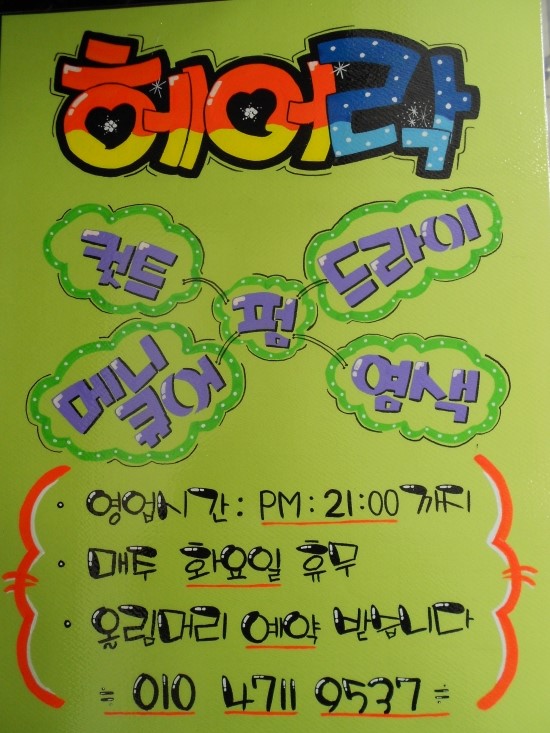 헤어락
컷트
드라이
펌
메니
큐어
염색
· 영업시간 : PM : 21:00까지
· 매주 화요일 휴무
· 올림머리 예약 받습니다
= 010 4711 9537 =